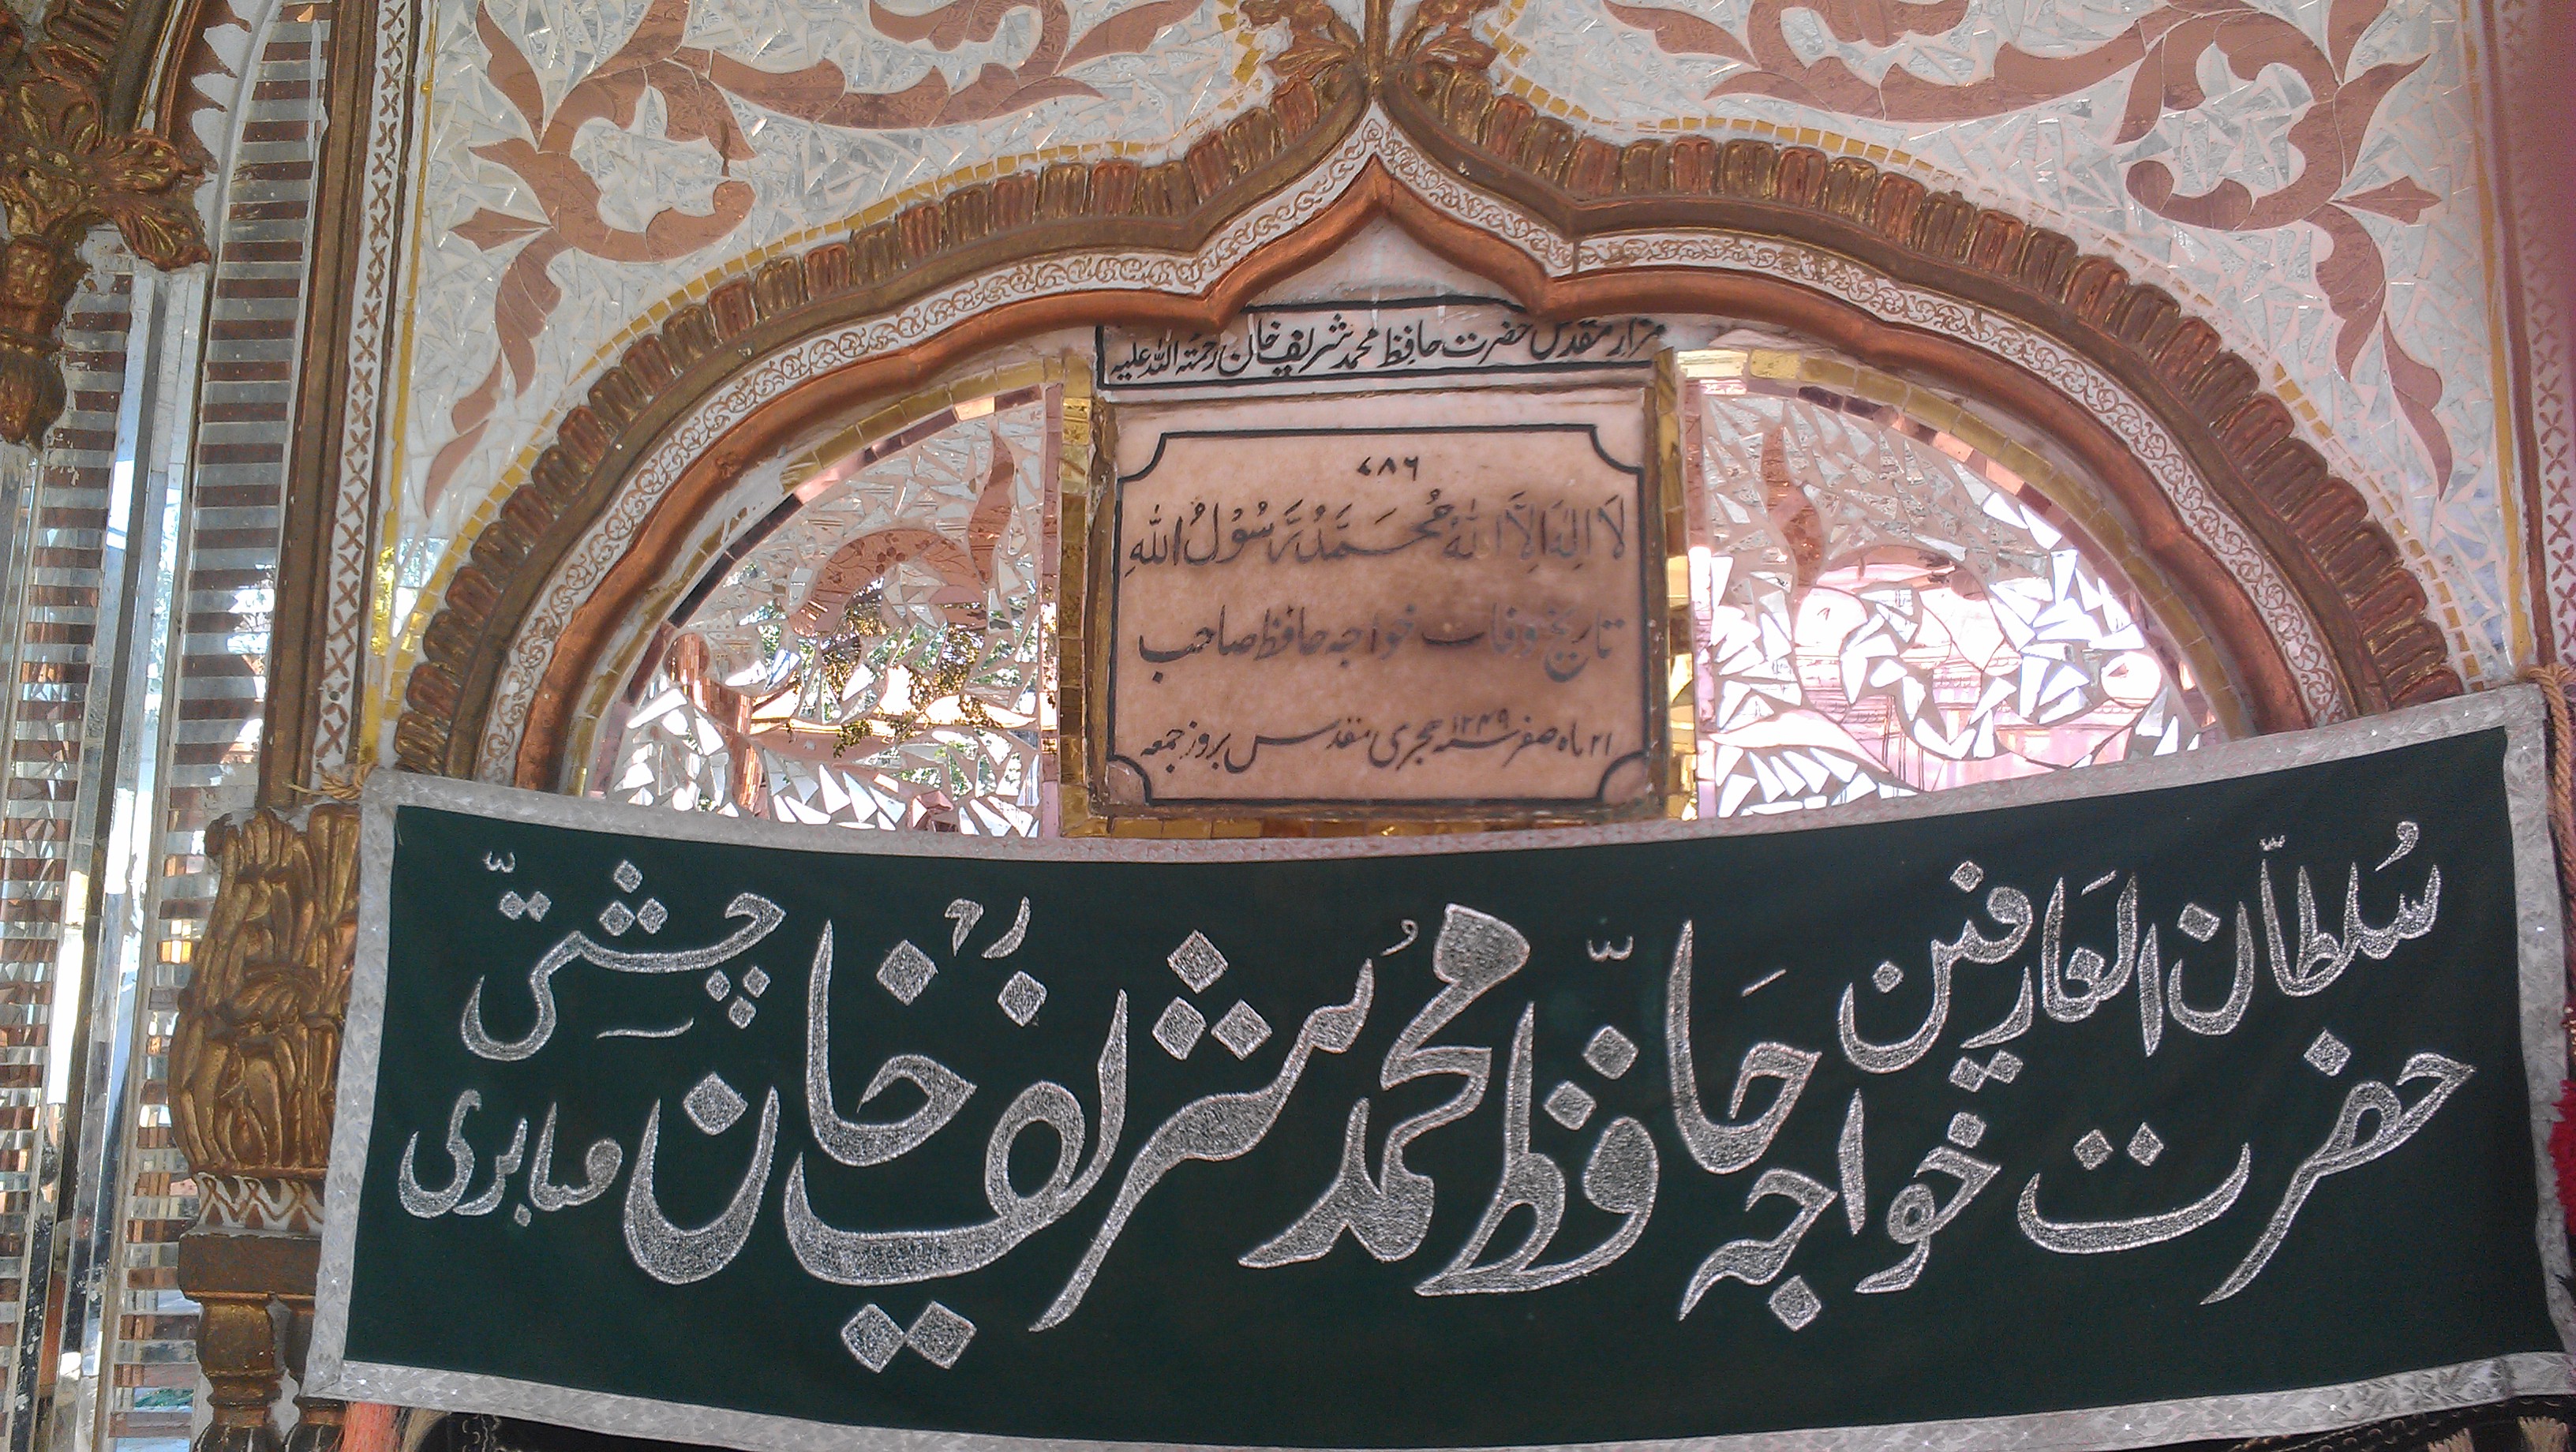 مزارِ مقدس حضرت حافِظ محمد شریف خان رحمتہ اللہ علیہ
۷۸۶
لَا اِلٰهَ اِلَّا اللهُ مُحَمَّدُ رَّسُوْلُ اللهِ
تاریخ وفات خواجہ حافظ صاحب
۲۱ ماہ صفر ۱۲۴۹ ہجری مقدس بروز جمعہ
سُلطان العَارفین
حضرت خواجہ حافظ محمد شریف خان چشتی
صابری